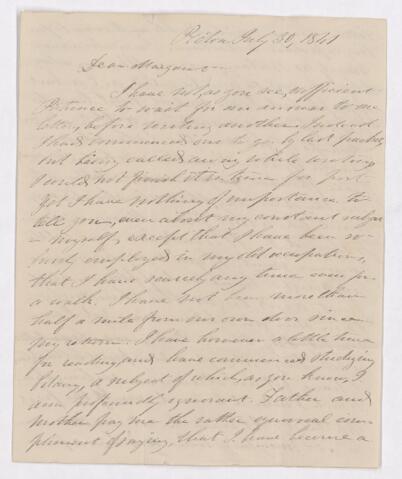 Pictou July 30, 1841
Dear Margaret
I have not, as you see, sufficient
Patience to wait for an answer to one
letter, before writing another. Indeed
I had commenced one to go by last packet
but being called away while writing
I could not finish it in time for post
Yet I have nothing of importance to
tell you, even about my constant subject
- myself, except that I have been so
busily employed in my old occupations,
that I have scarcely any time even for
a walk. I have not been more than
half a mile from our own door since
my return. I have however a little time
for reading, and have commenced studying
Botany, a subject of which, as you know, I
am profoundly ignorant. Father and
mother pay me the rather equivocal com-
pliment of saying, that I have become a